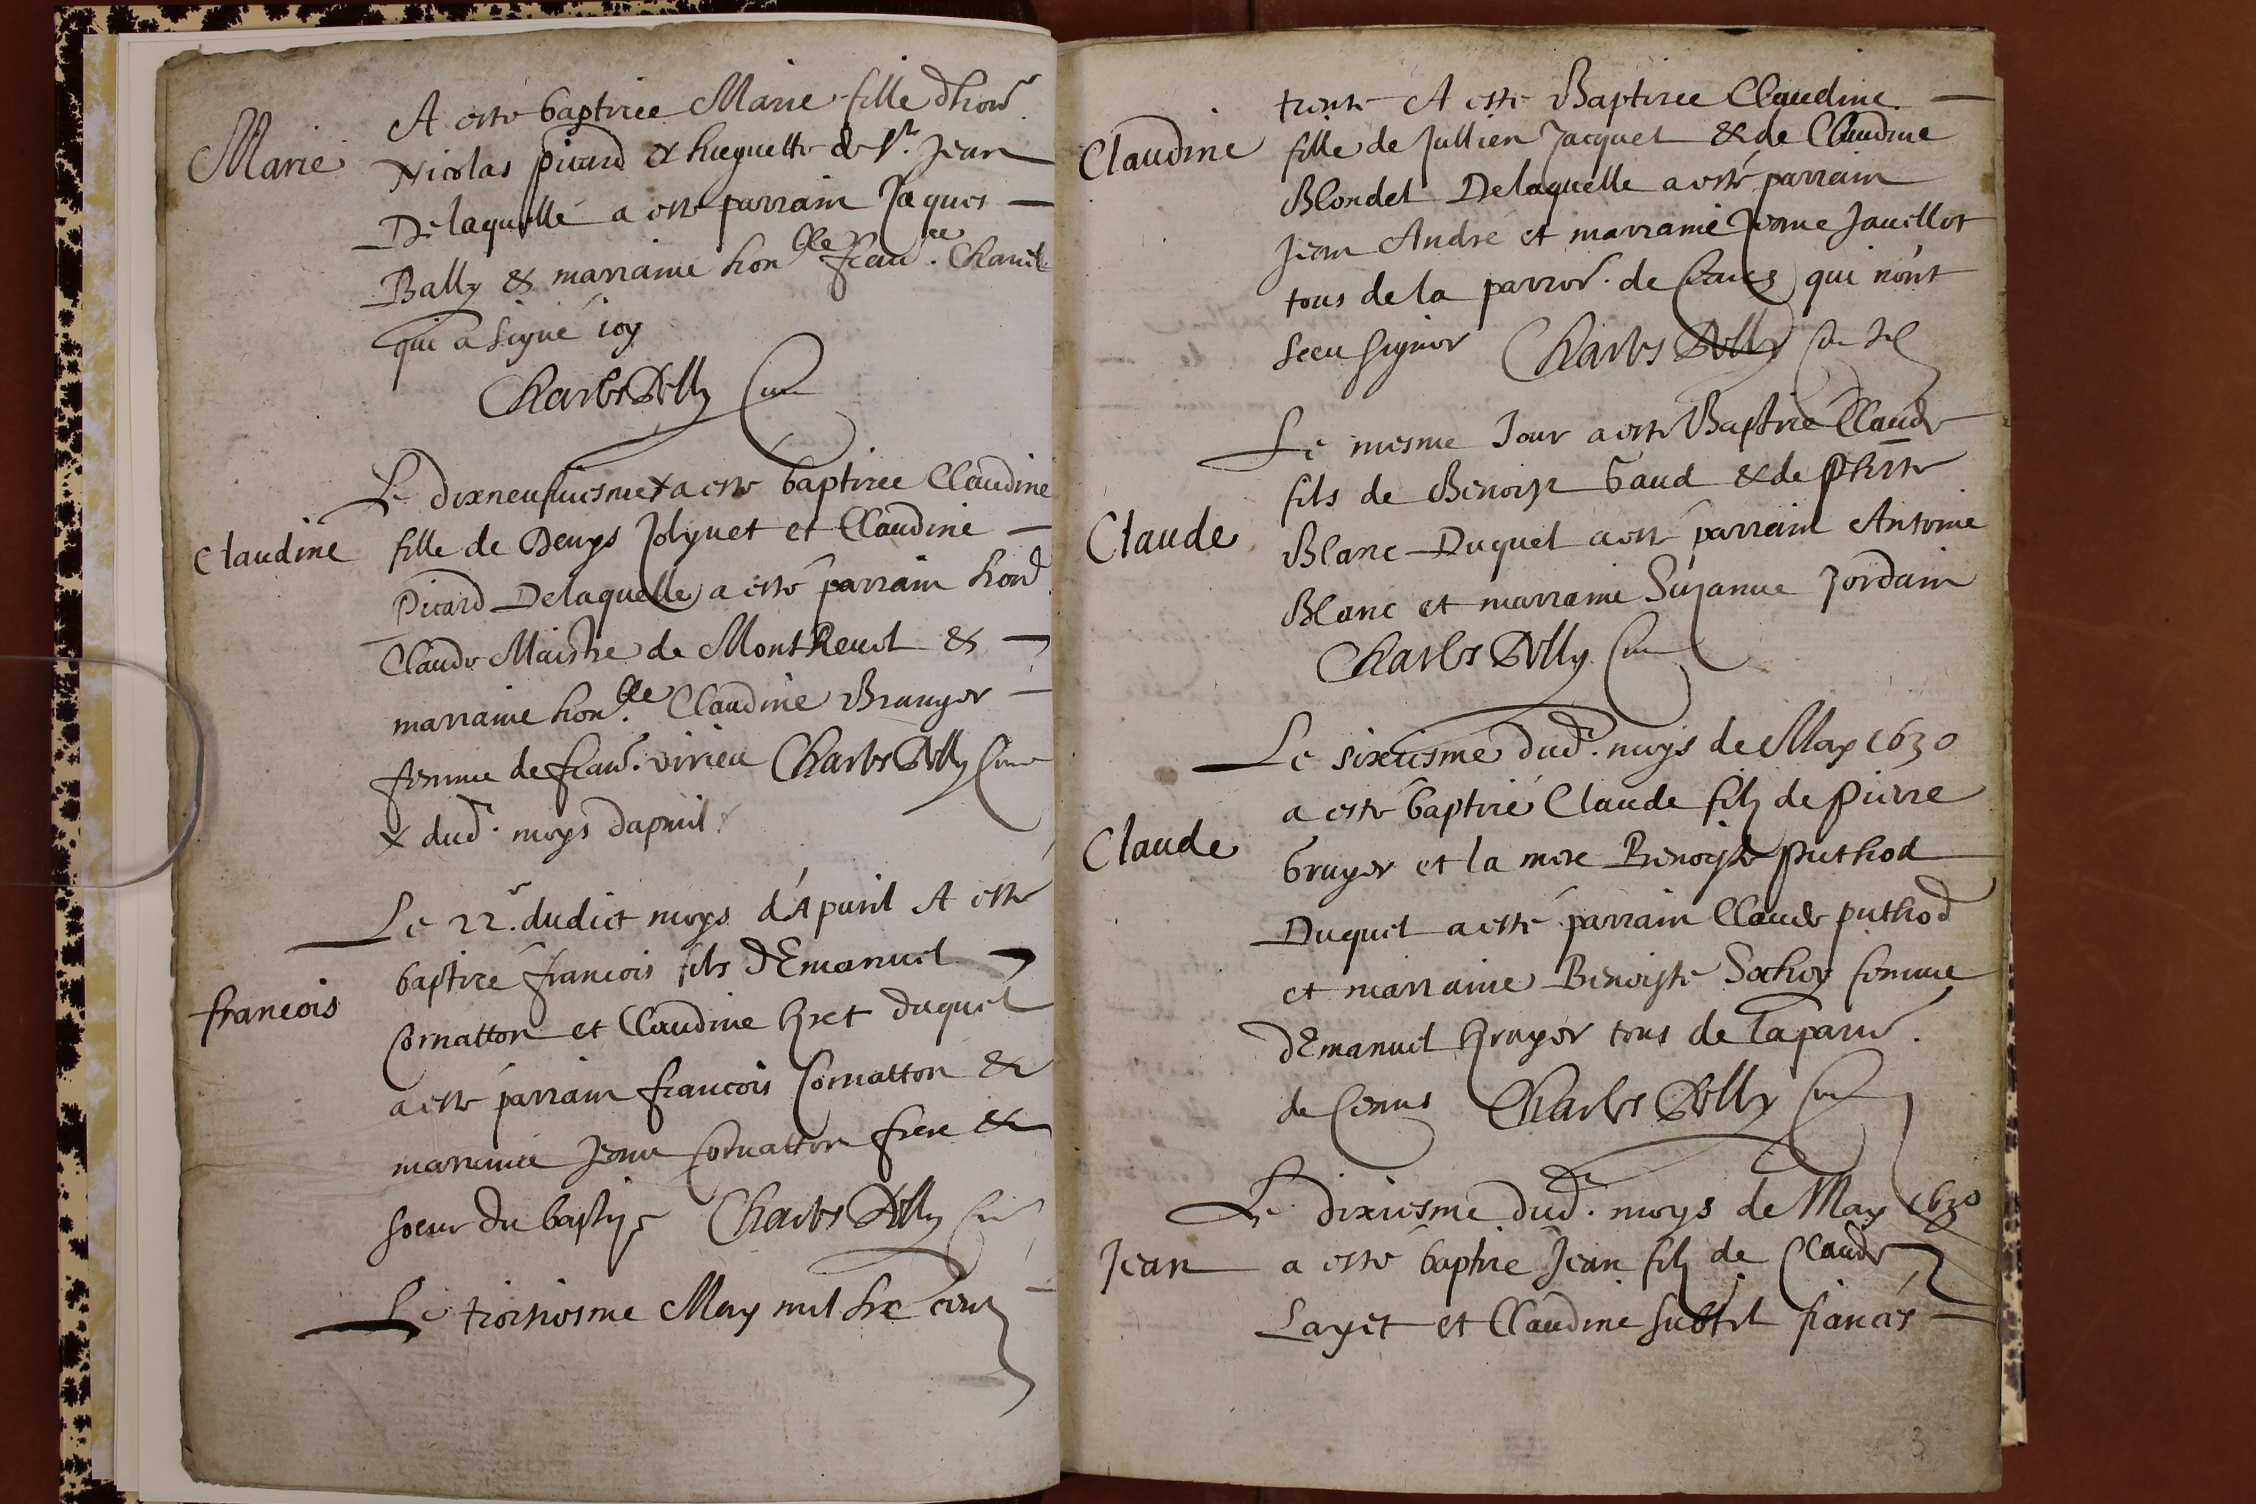 Marie
A esté baptizee Marie fille d'honr
Nicolas picard & huguette de St. Jean
Delaquelle a esté parrain Jaques
Bally & marraine honlle. francee. Chanel
qui a signé icy
Charles Dolly Curé
Claudine
Le dixneufuiesme x a esté baptizee Claudine
fille de Denys Jolyuet et Claudine
Picard Delaquelle a esté parrain hond
Claude Maistre de Montreuil &
marraine honlle. Claudine Brunger
femme de franc. virieu Charles Dolly Curé
x dud. moys dapuril
Le 22e. dudict moys d'Apuril A esté
francois
baptizé francois fils d'Emanuel
Cornatton et Claudine Gret duquel
a esté parrain francois Cornatton &
marraine Jeanne Cornatton frere &
soeur du baptizé Charles Dolly Curé
Le troisiesme May mil six cent
trente A esté Baptizee Claudine
Claudine
fille de Jullien Jacquet & de Claudine
Blondel Delaquelle a esté parrain
Jean André et marraine Jeanne Jauillot
tous de la parroe. de qui n'ont
sceu signer Charles Dolly
Le mesme Jour a esté Baptizé Claude
fils de Benoist Gaud & de
Claude
Blanc Duquel a esté parrain Antoine
Blanc et marraine Suzanne Jordain
Charles Dolly Curé
Le sixiesme dud. moys de May 1630
a esté baptizé Claude filz de Pierre
Claude
Gruyer et la mere Benoiste puthod
Duquel a esté parrain Claude puthod
et marraine Benoiste Sochay femme
d'Emanuel Gruyer tous de la parre.
de Charles Dolly Curé
Le dixiesme dud. moys de May 1630
Jean
a esté baptizé Jean filz de Claude
Layet et Claudine subtil fiancés
3